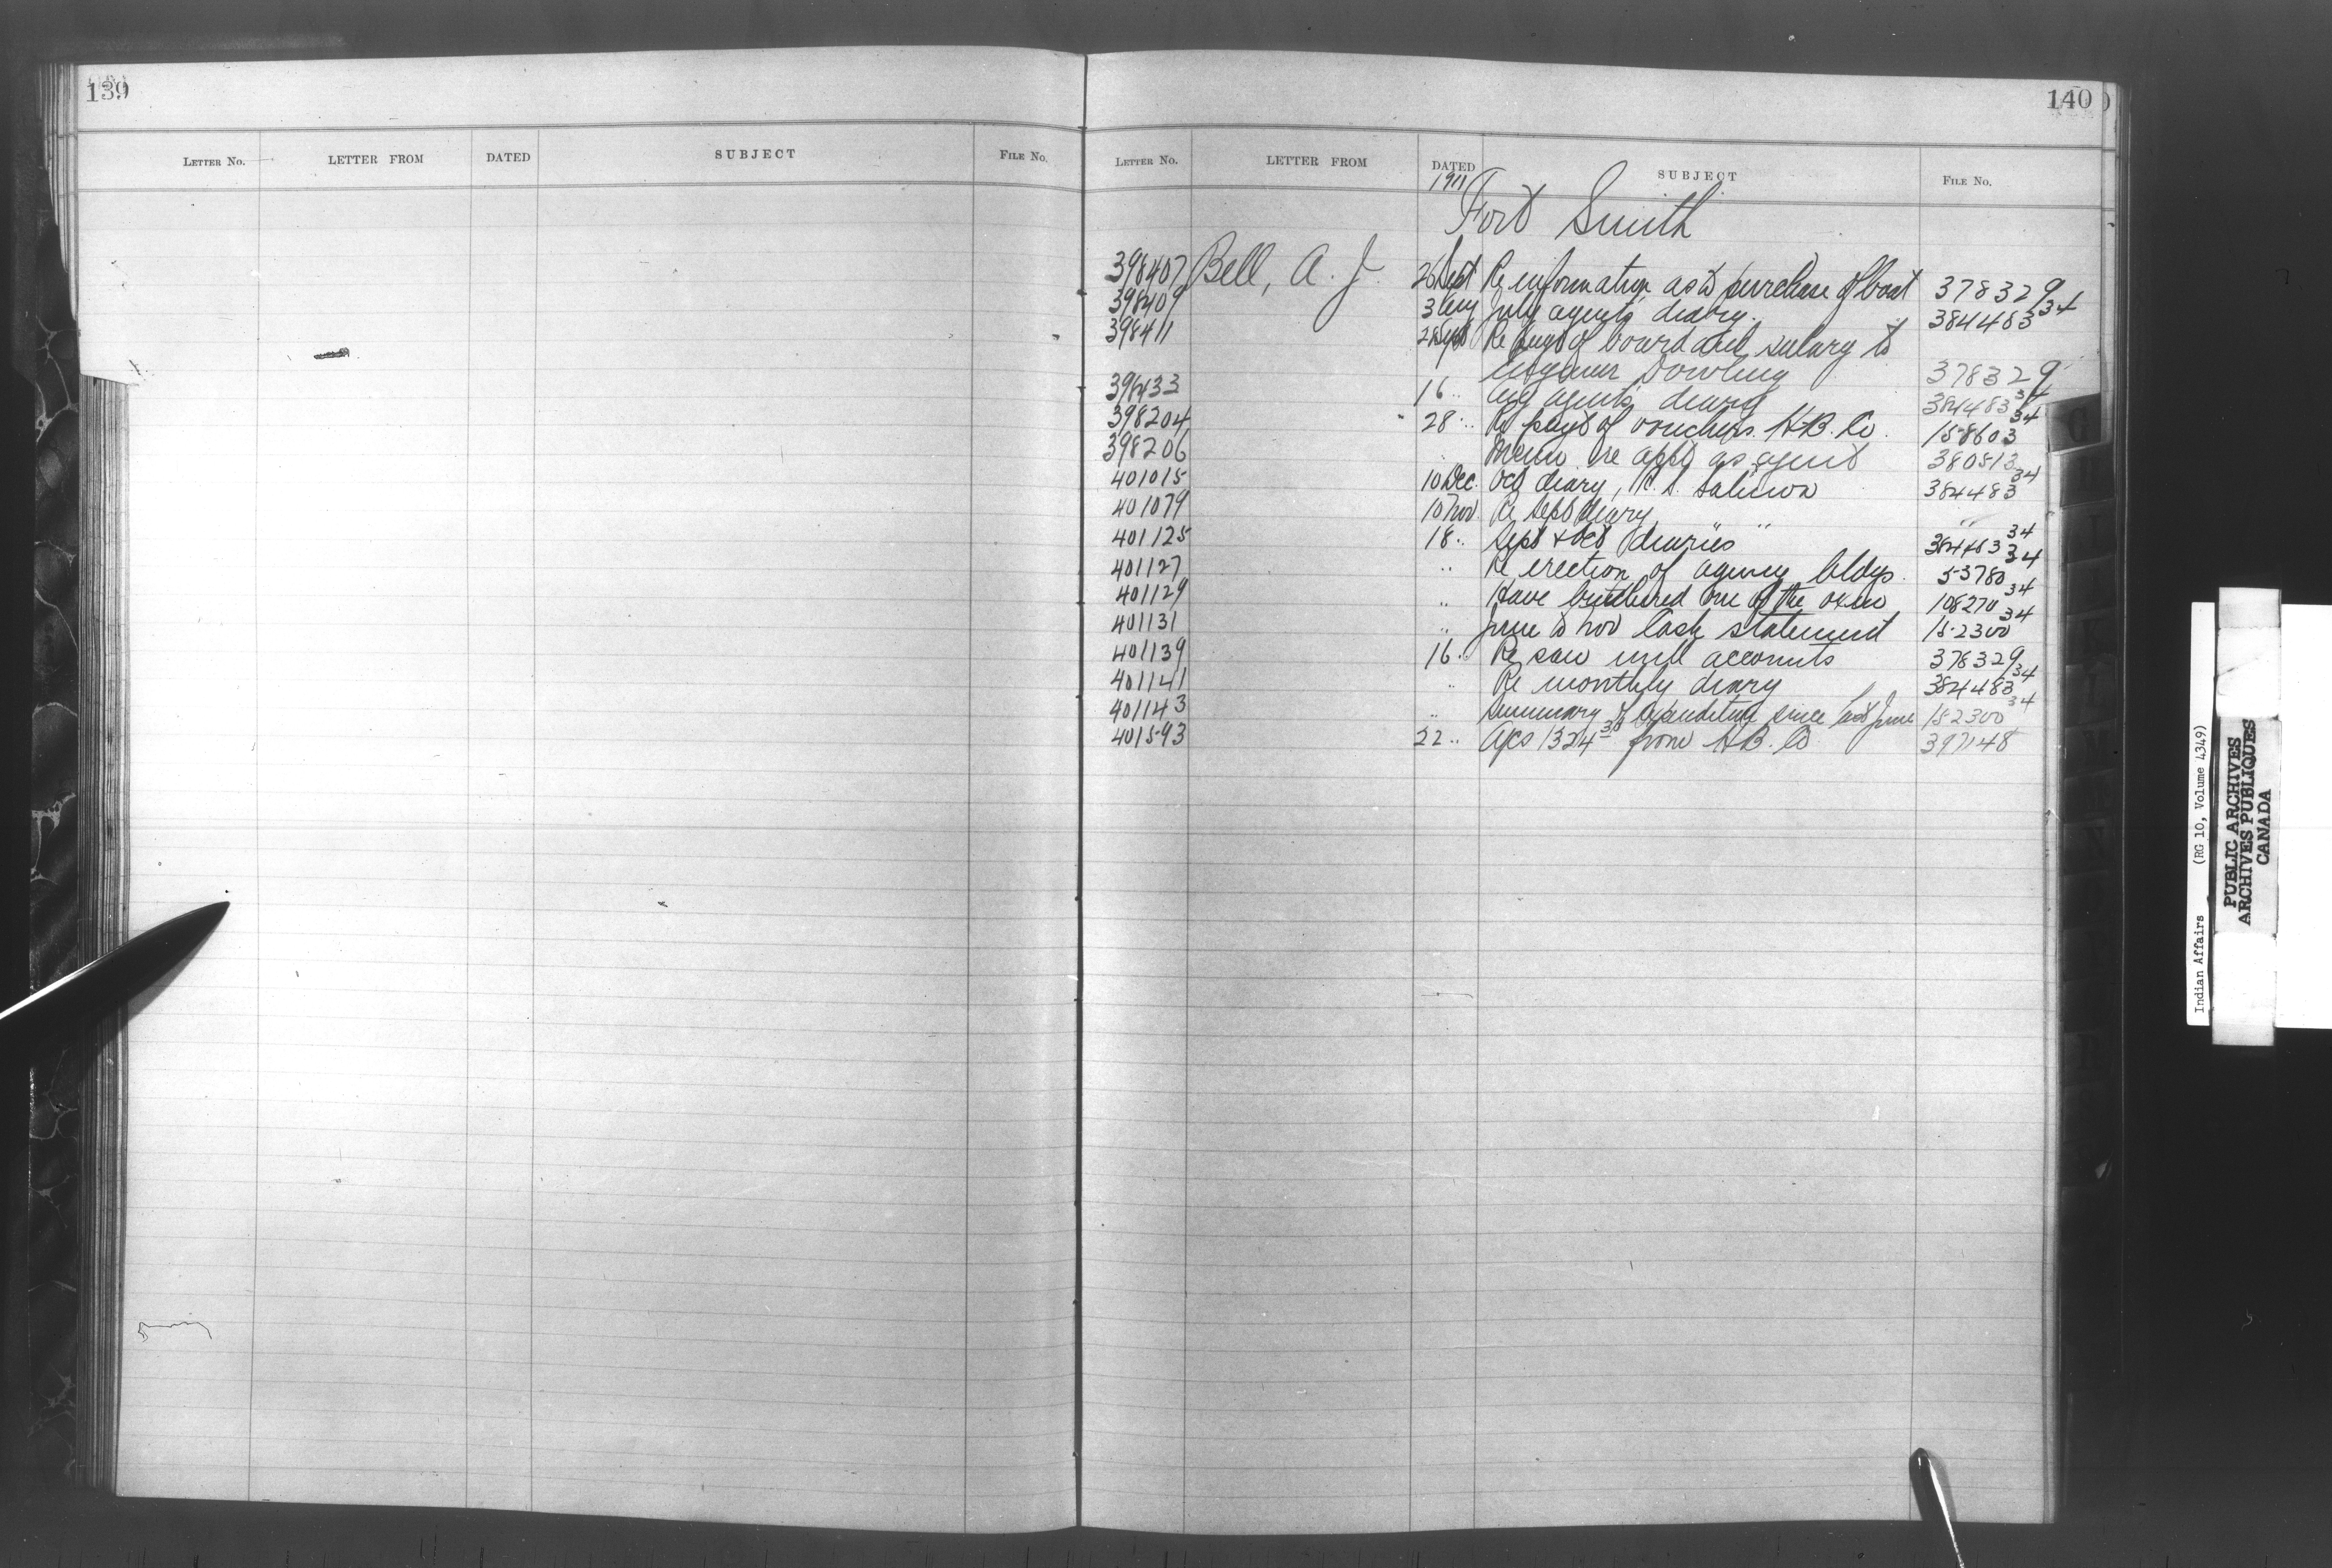 139
LETTER NO. LETTER FROM DATED SUBJECT FILE NO.
140
LETTER NO. LETTER FROM DATED SUBJECT FILE NO.
1911
Fort Smith
398407 Bell, A. J. 26 Sept Re information as to purchase of boat 378329
398409 3 Aug July agents diary. 384483 34
398411 28 Sept Re payt of board and salary to
Engineer Dowling 378329
398433 16 " Aug agents diary 384483 34
398204 28 " Re payt of vouchers H.B. Co. 158603 34
398206 " Memo re appt as agent 380513
401015 10 Dec. Oct diary, 384483 34
401079 10 Nov. Re Sept diary " "
401125 18 " Sept & Oct diaries " 384483 34
401127 " Re erection of agency bldgs. 53780 34
401129 " Have butchered one of the oxen 108270 34
401131 " June to Nov Cash statement 152300 34
401139 16 " Re saw mill accounts 378329
401141 " Re monthly diary 384483 34
401143 " Summary of expenditure since last June 152300 34
401593 22 " A/cs 1324 30 from H.B. Co 397148
G
Indian Affairs (RG 10, Volume 4349)
PUBLIC ARCHIVES
ARCHIVES PUBLIQUES
CANADA